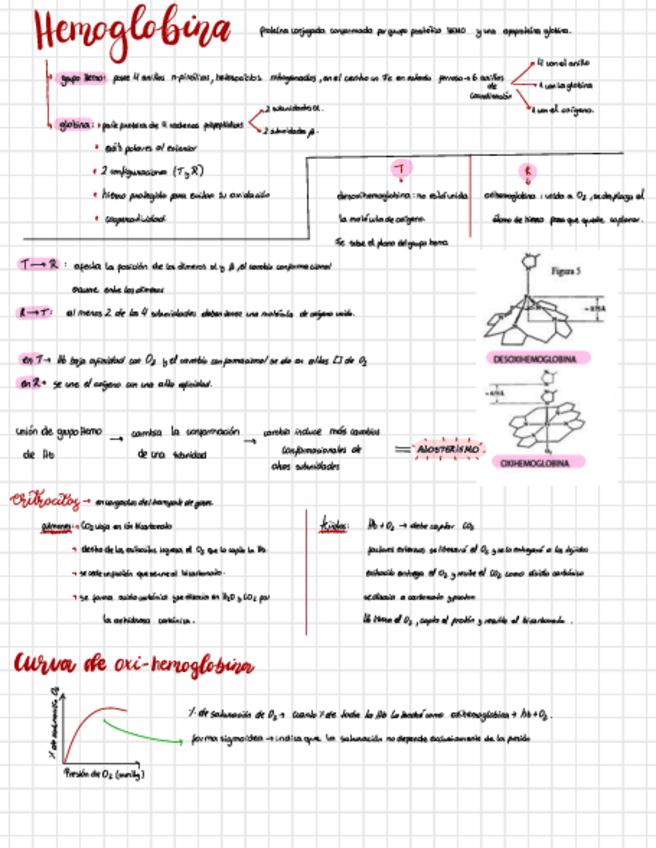 Hemoglobina
proteína conjugada conformada por grupo prostético HEMO y una apoproteína globina.
grupo hemo: posee 4 anillos n-pirólicos, nitrogenados, en el centro un Fe en estado ferroso → 6 anillos de coordinación
4 con el anillo
1 con la globina
1 con el oxígeno.
globina: • parte proteica de 4 cadenas polipeptídicas
2 subunidades α.
2 subunidades β.
• polares al exterior
• 2 configuraciones (T y R)
• hierro protegido para evitar su oxidación
• cooperatividad
T
desoxihemoglobina: no está unida
la molécula de oxígeno.
Fe sobre el plano del grupo hemo.
R
oxihemoglobina: unida a O₂, se desplaza el
átomo de hierro para que quede coplanar.
T → R: afecta la posición de los dímeros α y β, el cambio conformacional
ocurre entre los dímeros
R → T: al menos 2 de las 4 subunidades deben tener una molécula de oxígeno unida.
en T → Hb baja afinidad con O₂ y el cambio conformacional se da en altas [] de O₂
en R → se une el oxígeno con una alta afinidad.
Figura 5
DESOXIHEMOGLOBINA
OXIHEMOGLOBINA
unión de grupo Hemo de Hb → cambia la conformación de una subunidad → cambio induce más cambios conformacionales de otras subunidades = "ALOSTERISMO"
Eritrocitos → encargados del transporte de gases.
pulmones: → CO₂ viaja en ión bicarbonato
→ dentro de los ingresa el O₂ que lo capta la Hb.
→ se cede un protón que se une al bicarbonato.
→ se forma ácido carbónico y se disocia en H₂O y CO₂ por
la anhidrasa carbónica.
tejidos: Hb + O₂ → debe captar CO₂
factores externos se liberará el O₂ y se lo entregará a los tejidos
eritrocito entrega el O₂ y recibe el CO₂ como ácido carbónico
se disocia a carbonato y protón
Hb libera el O₂, capta el protón y resulta el bicarbonato.
Curva de oxi-hemoglobina
% de saturación O₂
Presión de O₂ (mmHg)
% de saturación de O₂ → cuanto % de toda la Hb la tendré como oxihemoglobina → Hb + O₂.
forma sigmoidea → indica que la saturación no depende exclusivamente de la presión